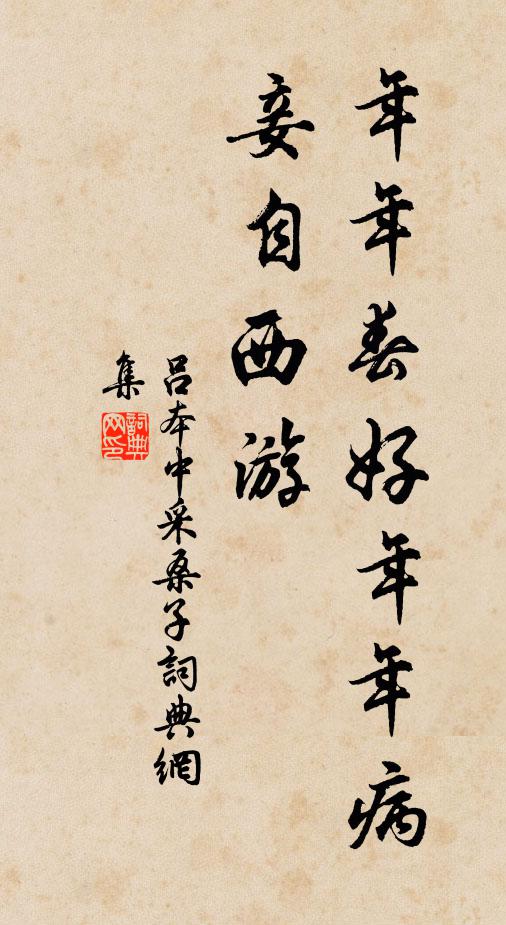 年年春好年年病
妾自西游
吕本中采桑子詞典網
集
詞典網印